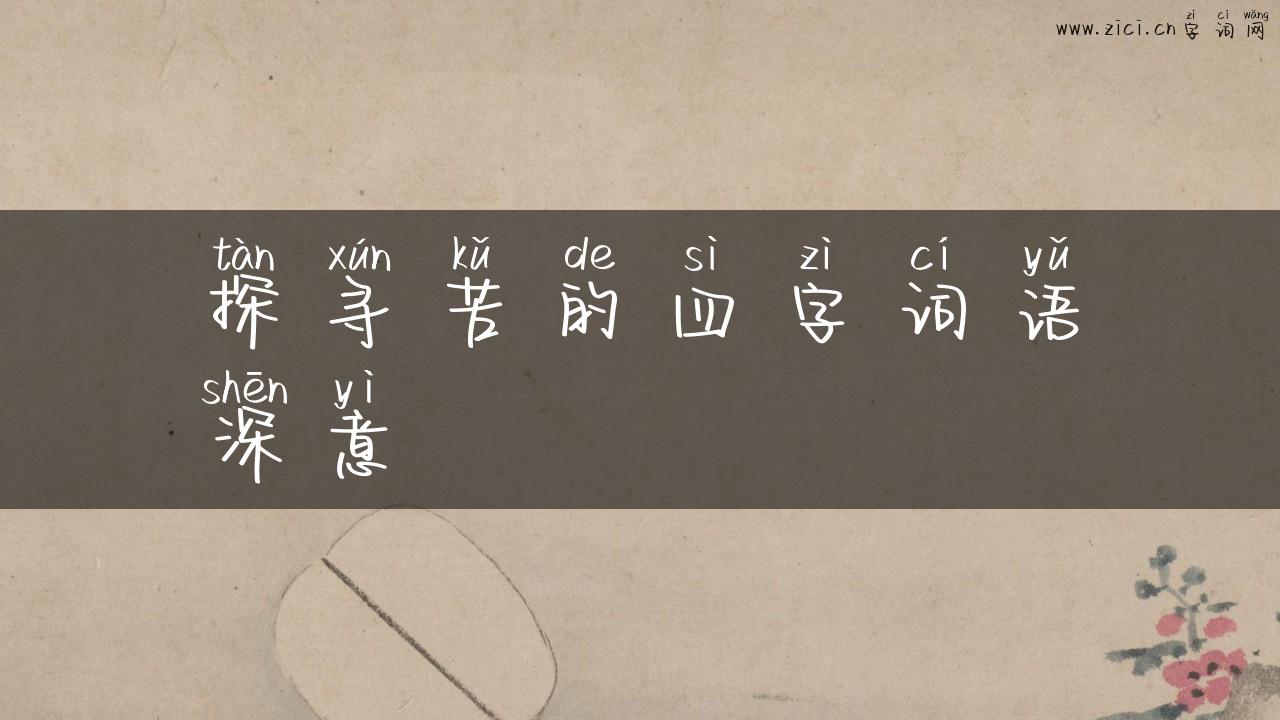 zì cí wǎng
www.zici.cn 字 词 网
tàn xún kǔ de sì zì cí yǔ
探 寻 苦 的 四 字 词 语
shēn yì
深 意